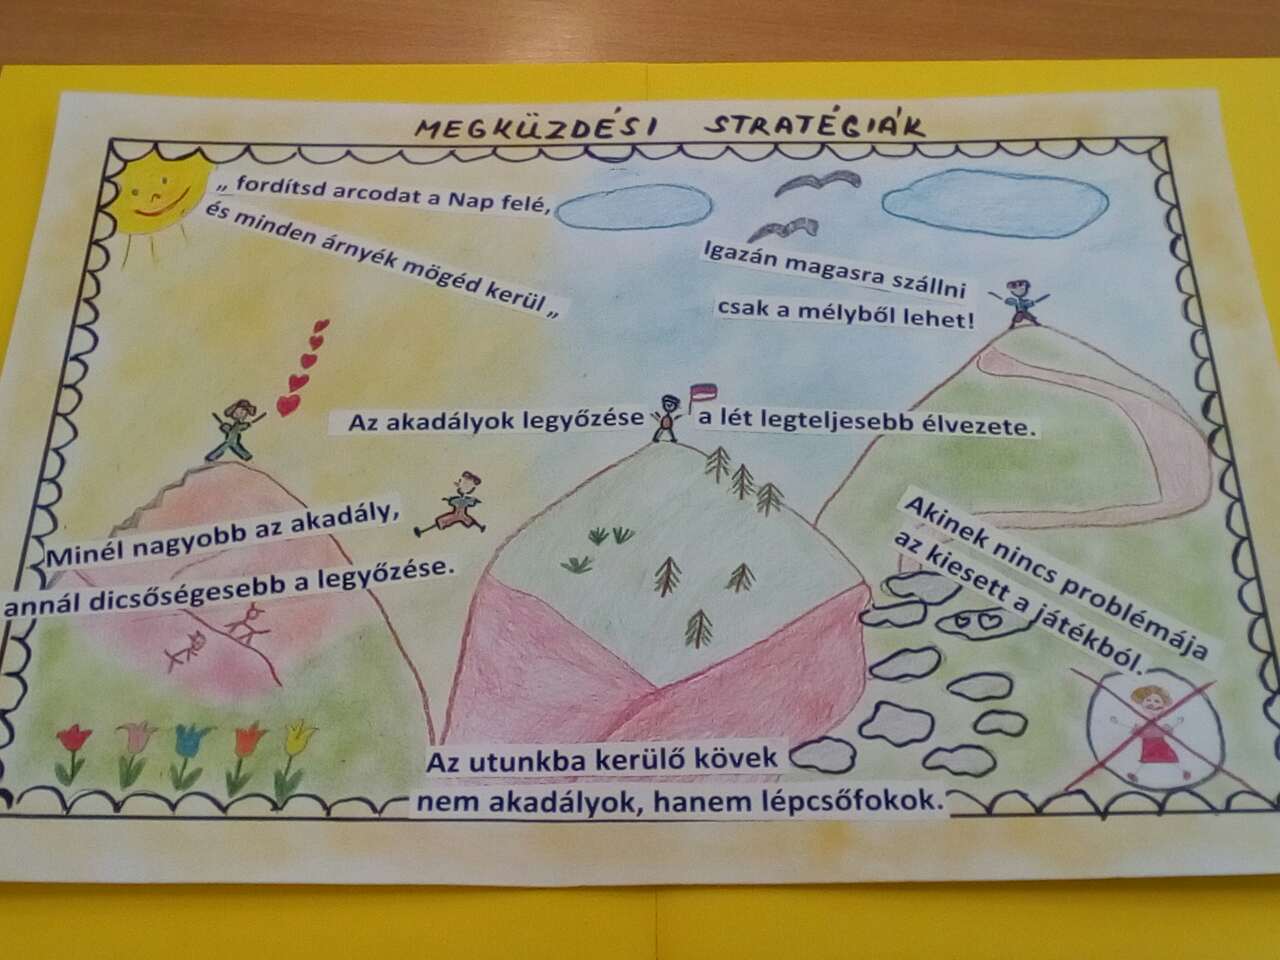 MEGKÜZDÉSI STRATÉGIÁK
„ fordítsd arcodat a Nap felé,
és minden árnyék mögéd kerül „
Igazán magasra szállni
csak a mélyből lehet!
Az akadályok legyőzése a lét legteljesebb élvezete.
Minél nagyobb az akadály,
annál dicsőségesebb a legyőzése.
Akinek nincs problémája
az kiesett a játékból.
Az utunkba kerülő kövek
nem akadályok, hanem lépcsőfokok.